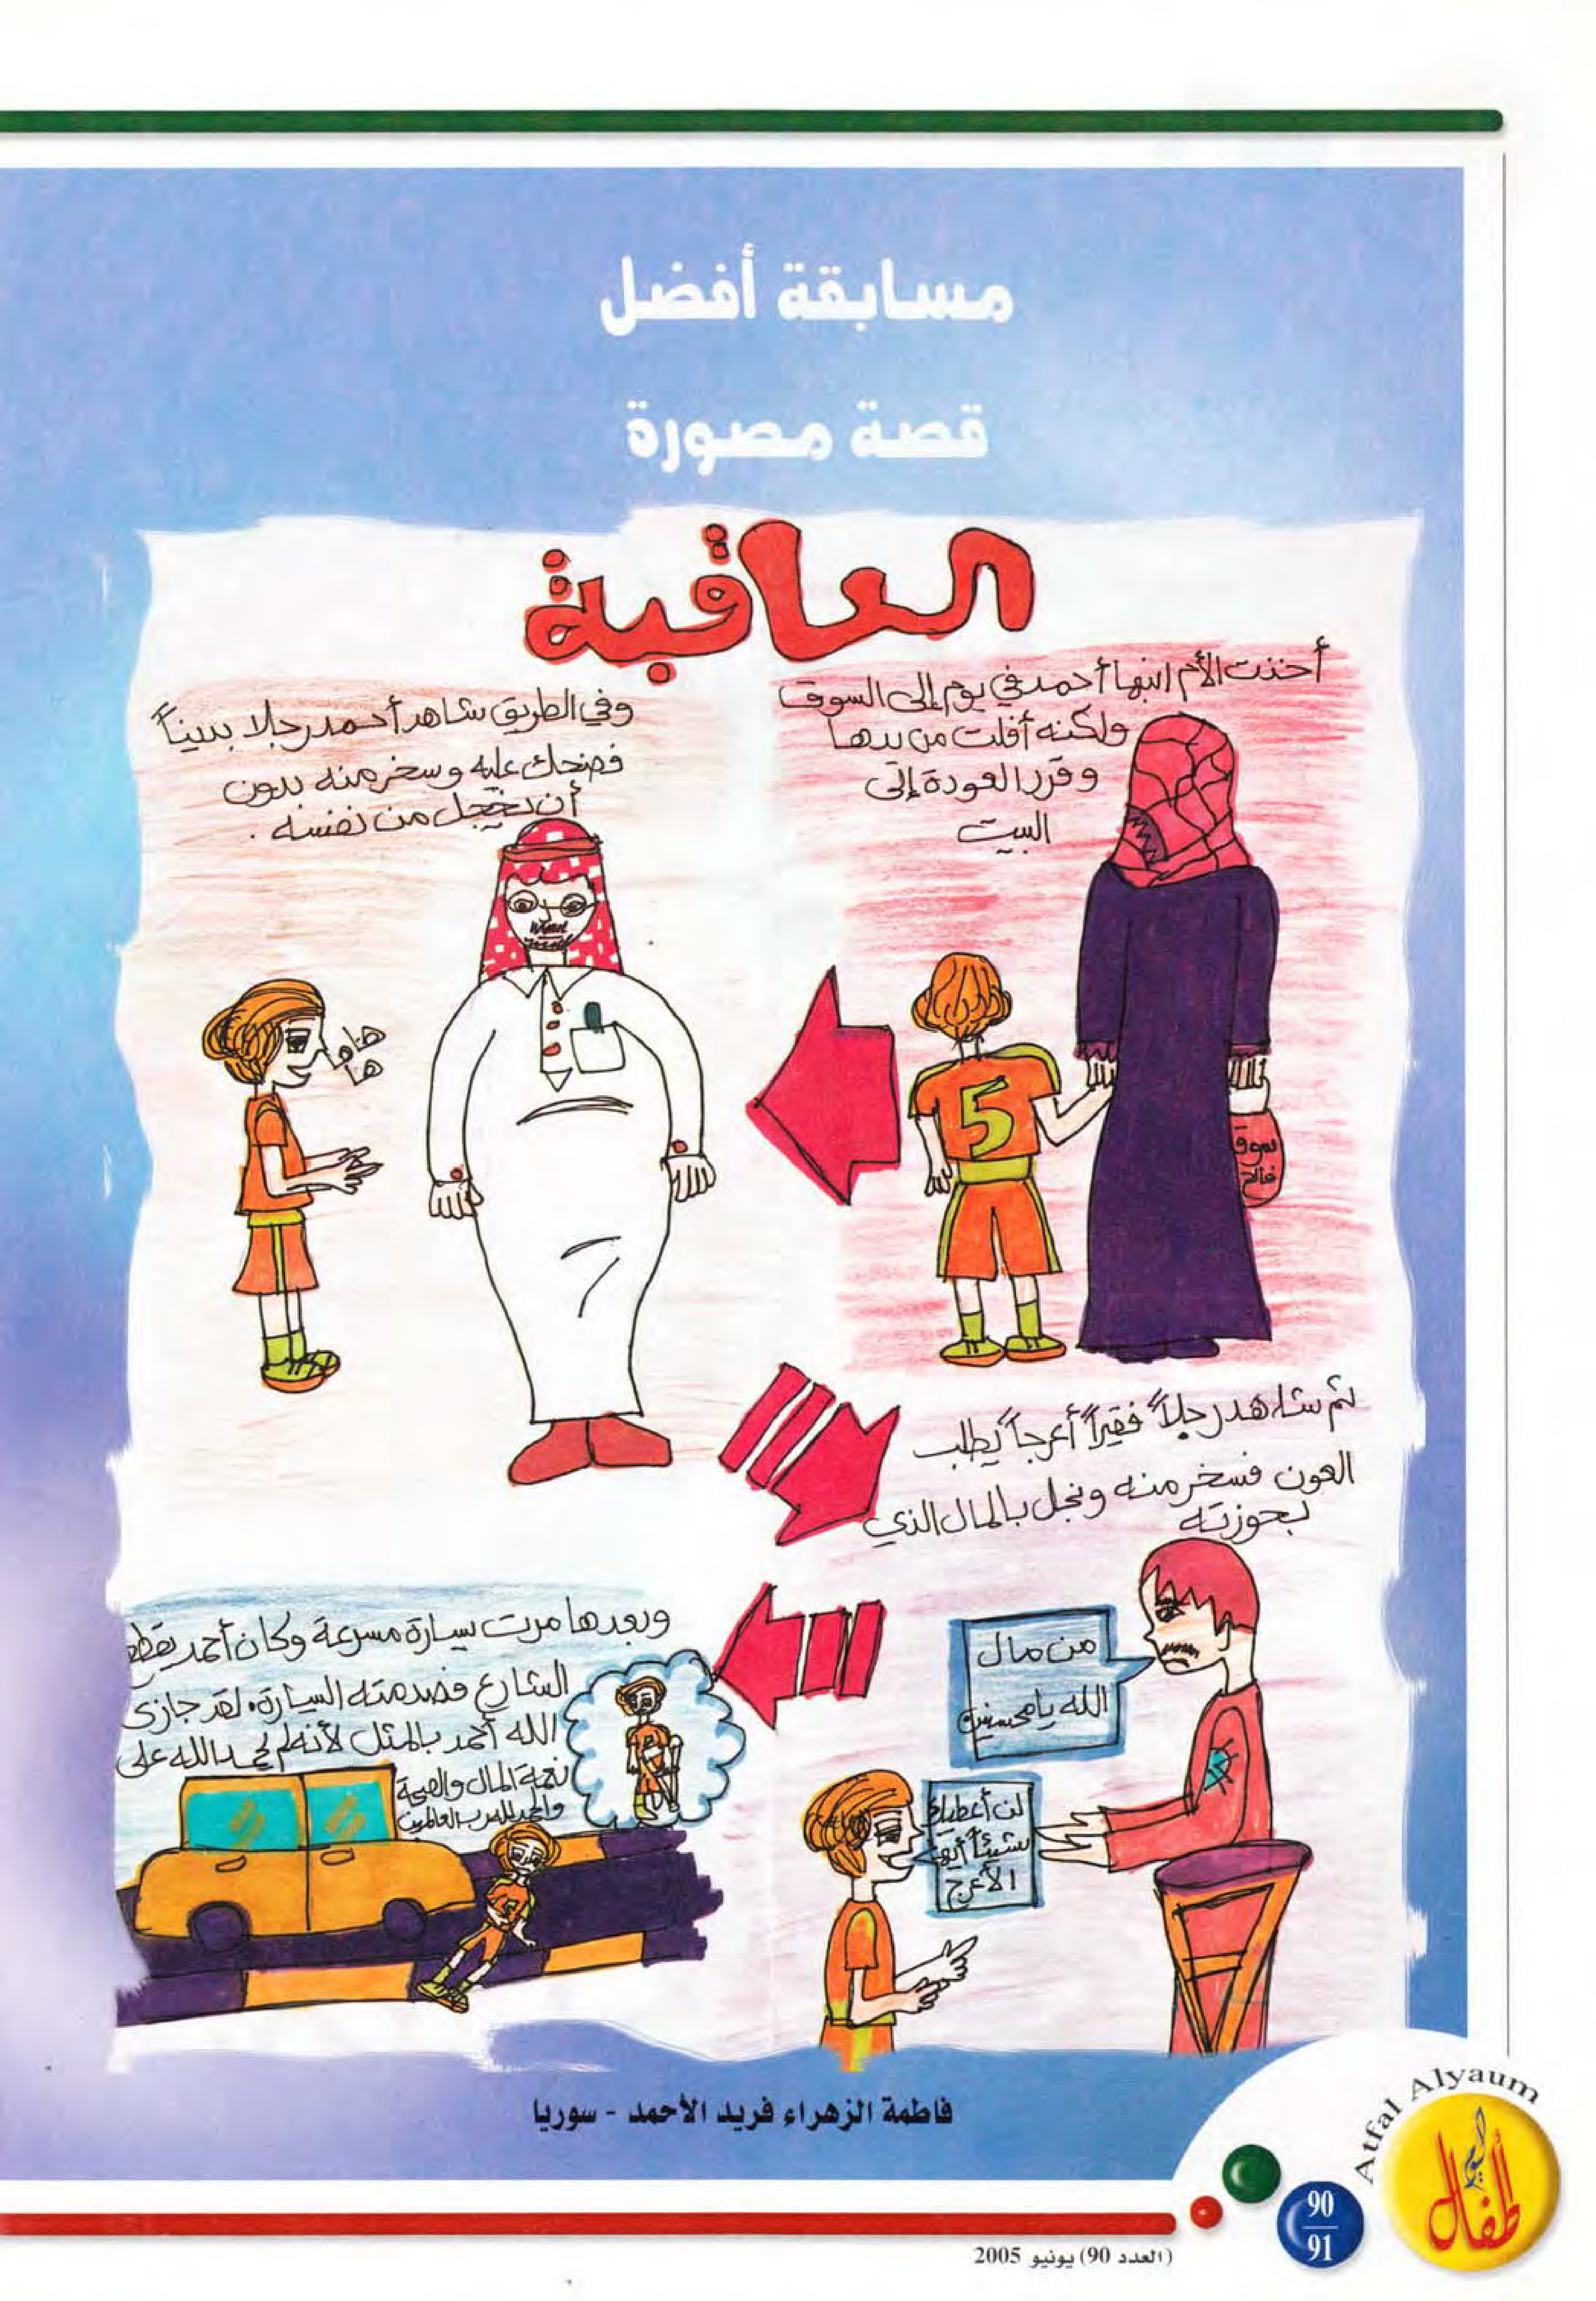 مسابقة أفضل
قصة مصورة
العاقبة
أخذت الأم ابنها أحمد في يوم إلى السوق
ولكنه أفلت من يدها
وقرر العودة إلى
البيت
سوق
وفي الطريق شاهد أحمد رجلا بديناً
فضحك عليه وسخر منه بدون
أن يخجل من نفسه .
هاها
ها
ثم شاهد رجلاً فقيراً أعرجاً يطلب
العون فسخر منه وبخل بالمال الذي
بحوزته
من مال
الله يا محسنين
لن أعطيك
شيئاً أيها
الأعرج
وبعدها مرت سيارة مسرعة وكان أحمد يقطع
الشارع فصدمته السيارة، لقد جازى
الله أحمد بالمثل لأنه لم يحمد الله على
نعمة المال والصحة
والحمد لله رب العالمين
فاطمة الزهراء فريد الأحمد - سوريا
Atfal Alyaum
أطفال اليوم
90
91
(العدد 90) يونيو 2005